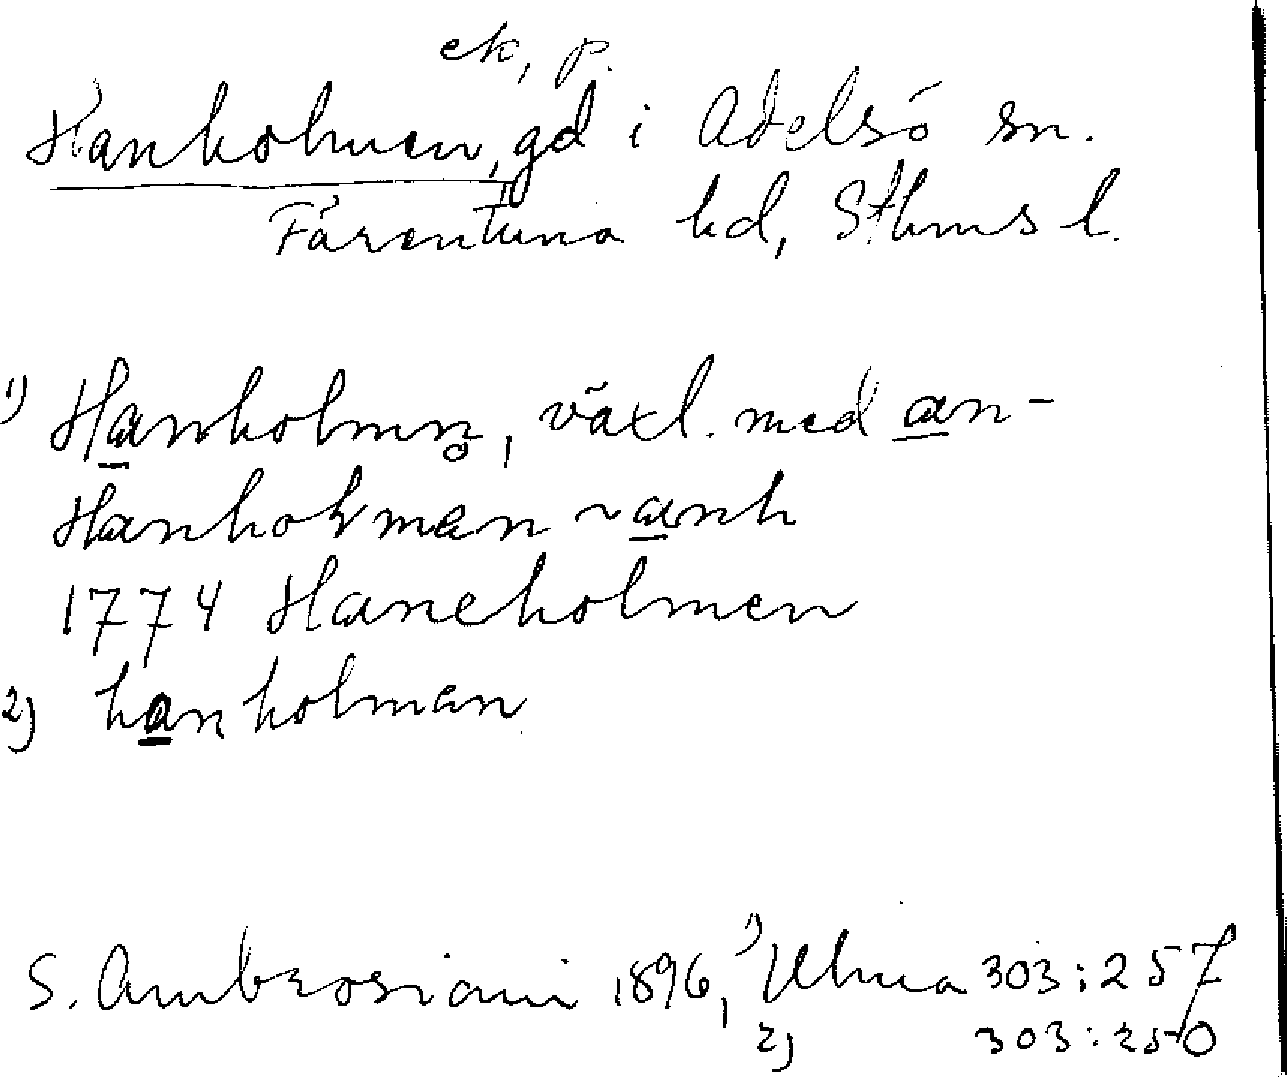 ek, p.
Hanholmen, gd i Adelsö sn.
Färentuna hd, Sthms l.
1) Hanholmn̥, växl. med an-
Hanholman ~ anh
1774 Haneholmen
2) hanholman
S. Ambrosiani 1896, 1) Ulma 303:257
2) 303:250